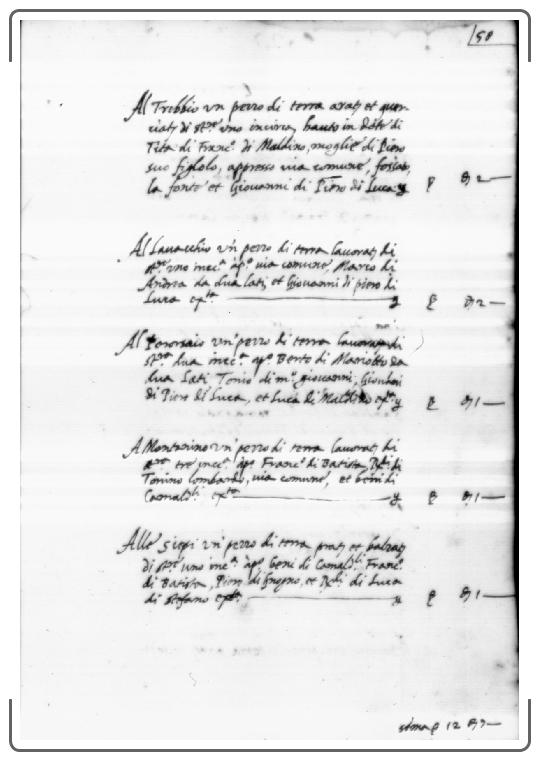 58
Al Trebbio vn pezzo di terra arat et quer
ciat di st.re vno incirca, hauto in dote di
Tita di Franc.o di Maldino, moglie di Piero
suo figlolo, appresso via comune, fossat,
la fonte et Giovanni di Piero di Luca y
Al Lavacchio vn pezzo di terra lavorat di
st.re vno inc.a ap.o via comune, Marco di
Andrea da dua lati, et Giovanni di piero di
Luca
Al vn pezzo di terra lavorat di
st.ra dua inc.a ap.o Berto di Mariotto da
dua Lati Tonio di m.o giovanni, Giovanni
di Piero di Luca, et Luca di Maldino
A Montanino vn pezzo di terra lavorat di
tre inc.a ap.o Franc.o di Batista, di
Tonino lombardo, via comune, et beni di
Camald.li
Alle Siepi vn pezzo di terra prat et balzat
di st.re uno inc.a ap.o beni di Camald.li Franc.o
di Batista, Piero di et di Luca
di stefano
12